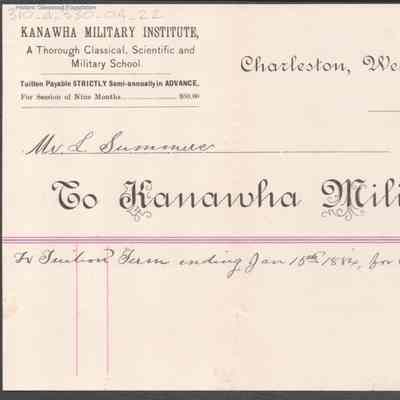 Historic Glenwood Foundation
310-d-530-04-22
KANAWHA MILITARY INSTITUTE,
A Thorough Classical, Scientific and
Military School.
Tuition Payable STRICTLY Semi-annually in ADVANCE.
For Session of Nine Months........................ $50.00
Charleston, We
Mr. L. Summers
To Kanawha Mili
To Tuition Term ending Jan 15th 1884, for